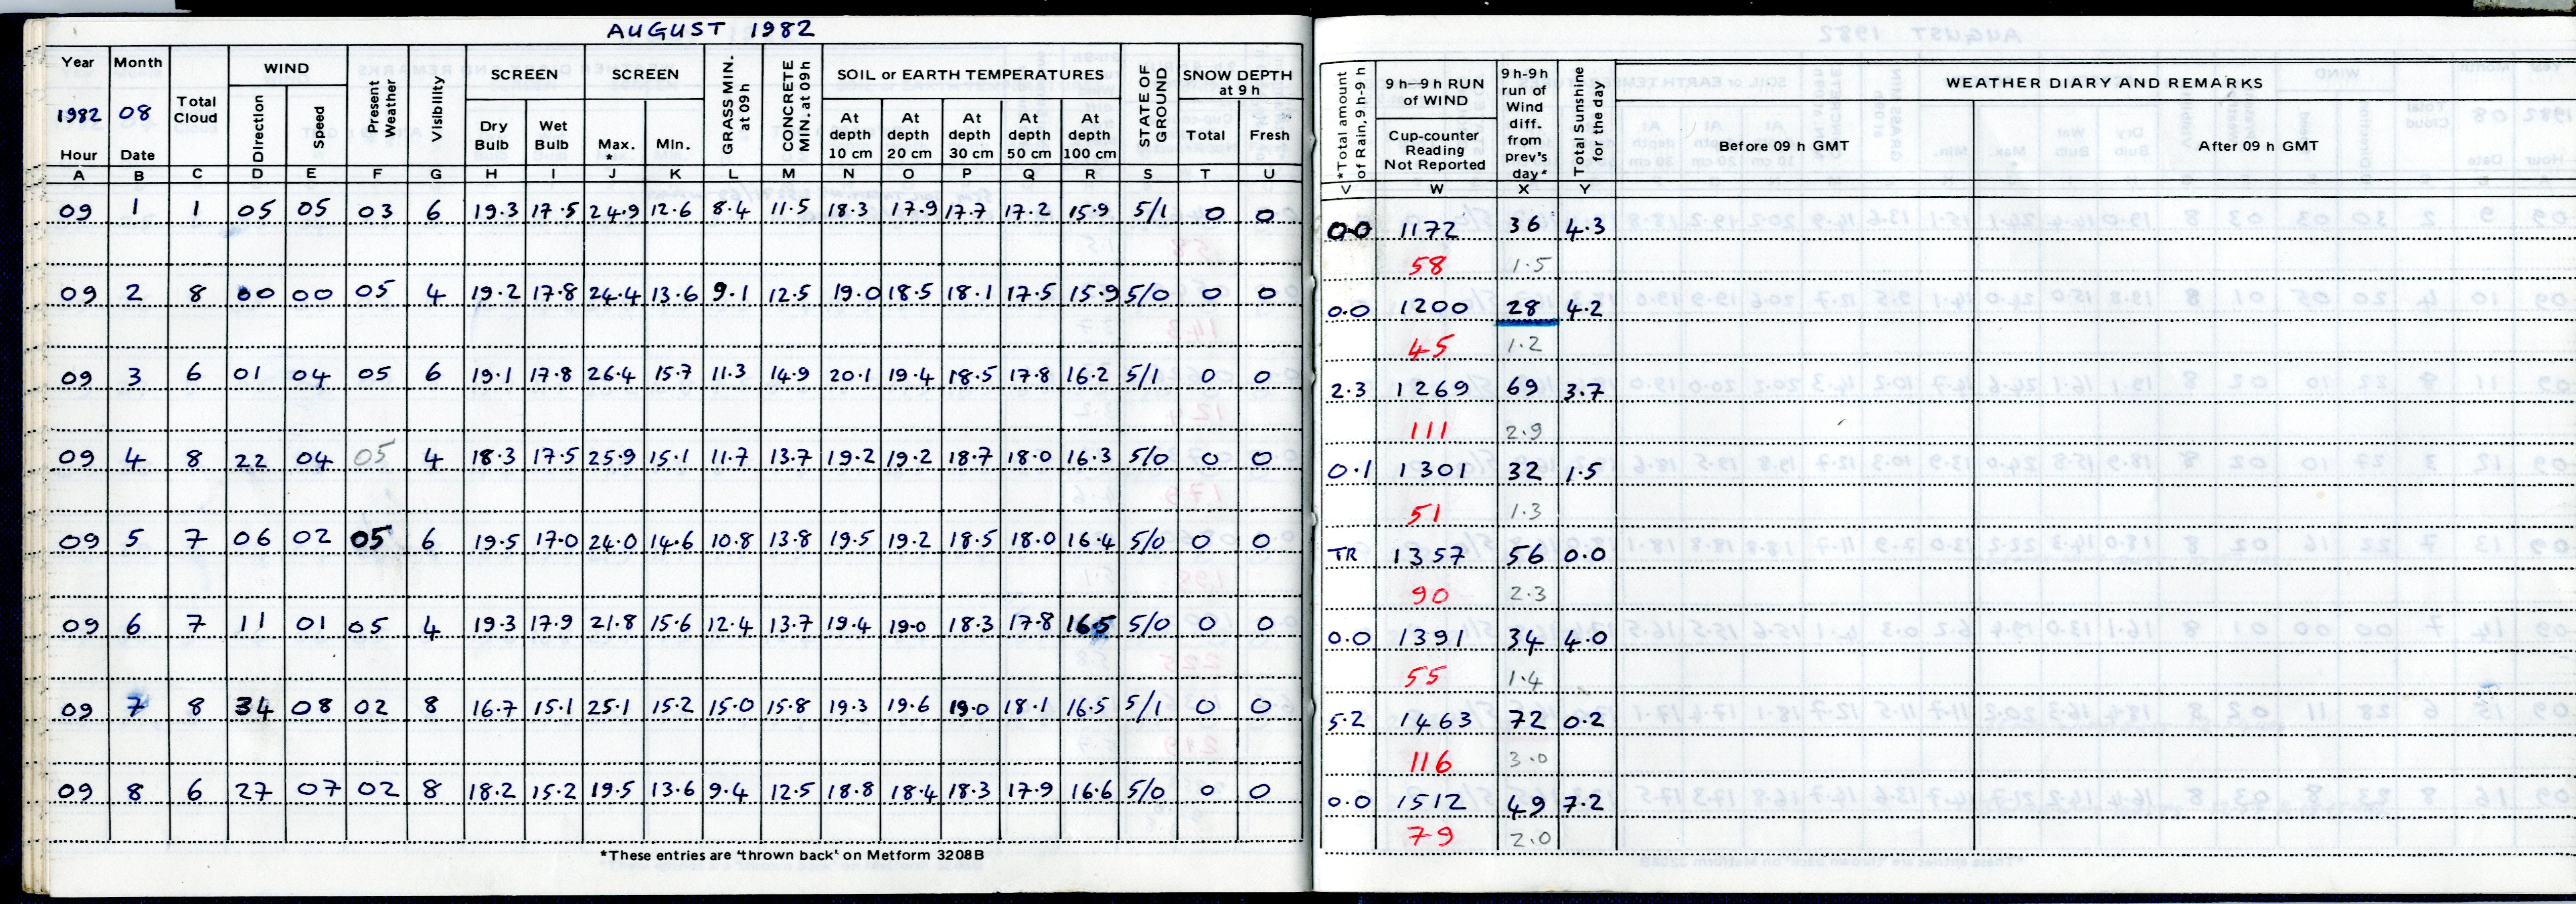 AUGUST 1982
Year Month Total Cloud WIND Present Weather Visibility SCREEN SCREEN GRASS MIN. at 09h CONCRETE MIN. at 09h SOIL or EARTH TEMPERATURES STATE OF GROUND SNOW DEPTH at 9 h
1982 08 Direction Speed Dry Bulb Wet Bulb Max.* Min. At depth 10 cm At depth 20 cm At depth 30 cm At depth 50 cm At depth 100 cm Total Fresh
Hour Date
A B C D E F G H I J K L M N O P Q R S T U
09 1 1 05 05 03 6 19.3 17.5 24.9 12.6 8.4 11.5 18.3 17.9 17.7 17.2 15.9 5/1 0 0
09 2 8 00 00 05 4 19.2 17.8 24.4 13.6 9.1 12.5 19.0 18.5 18.1 17.5 15.9 5/0 0 0
09 3 6 01 04 05 6 19.1 17.8 26.4 15.7 11.3 14.9 20.1 19.4 18.5 17.8 16.2 5/1 0 0
09 4 8 22 04 05 4 18.3 17.5 25.9 15.1 11.7 13.7 19.2 19.2 18.7 18.0 16.3 5/0 0 0
09 5 7 06 02 05 6 19.5 17.0 24.0 14.6 10.8 13.8 19.5 19.2 18.5 18.0 16.4 5/0 0 0
09 6 7 11 01 05 4 19.3 17.9 21.8 15.6 12.4 13.7 19.4 19.0 18.3 17.8 16.5 5/0 0 0
09 7 8 34 08 02 8 16.7 15.1 25.1 15.2 15.0 15.8 19.3 19.6 19.0 18.1 16.5 5/1 0 0
09 8 6 27 07 02 8 18.2 15.2 19.5 13.6 9.4 12.5 18.8 18.4 18.3 17.9 16.6 5/0 0 0
*These entries are 'thrown back' on Metform 3208B
*Total amount of Rain, 9h-9h 9h-9h RUN of WIND 9h-9h run of Wind diff. from prev's day* Total Sunshine for the day WEATHER DIARY AND REMARKS
Cup-counter Reading Not Reported Before 09 h GMT After 09 h GMT
V W X Y
0.0 1172 36 4.3
58 1.5
0.0 1200 28 4.2
45 1.2
2.3 1269 69 3.7
111 2.9
0.1 1301 32 1.5
51 1.3
TR 1357 56 0.0
90 2.3
0.0 1391 34 4.0
55 1.4
5.2 1463 72 0.2
116 3.0
0.0 1512 49 7.2
79 2.0